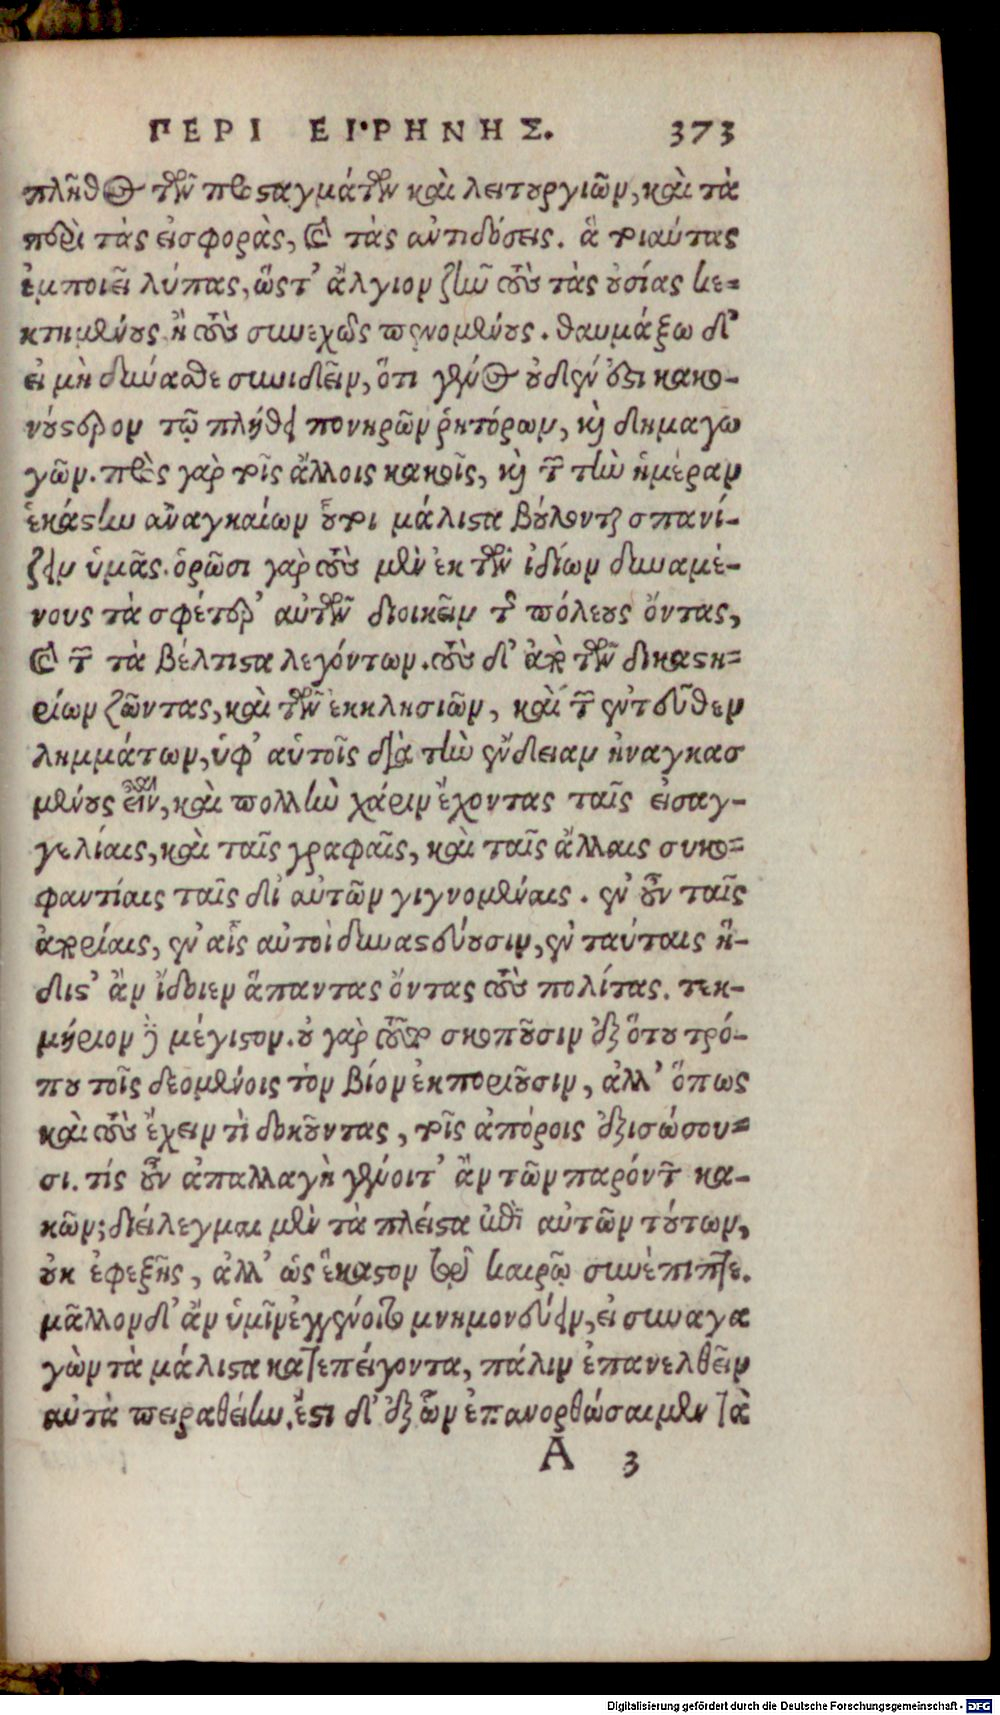 ΠΕΡΙ ΕΙΡΗΝΗΣ. 373
πλῆθος τῶν προσταγμάτων καὶ λειτουργιῶν, καὶ τὰ
περὶ τὰς εἰσφορὰς, καὶ τὰς ἀντιδόσεις. ἃ τοιαύτας
ἐμποιεῖ λύπας, ὥστ' ἄλγιον ζῆν τοὺς τὰς οὐσίας κε-
κτημένους ἢ τοὺς συνεχῶς πενομένους. θαυμάζω δ'
εἰ μὴ δύνασθε συνιδεῖν, ὅτι γένος οὐδέν ἐστι κακο-
νούστερον τῷ πλήθει πονηρῶν ῥητόρων, καὶ δημαγω
γῶν. πρὸς γὰρ τοῖς ἄλλοις κακοῖς, καὶ τῶν τὴν ἡμέραν
ἑκάστην ἀναγκαίων οὗτοι μάλιστα βούλονται σπανί-
ζειν ὑμᾶς. ὁρῶσι γὰρ τοὺς μὲν ἐκ τῶν ἰδίων δυναμέ-
νους τὰ σφέτερ' αὐτῶν διοικεῖν τῆς πόλεως ὄντας,
καὶ τῶν τὰ βέλτιστα λεγόντων. τοὺς δ' ἀπὸ τῶν δικαστη-
ρίων ζῶντας, καὶ τῶν ἐκκλησιῶν, καὶ τῶν ἐντεῦθεν
λημμάτων, ὑφ' αὑτοῖς διὰ τὴν ἔνδειαν ἠναγκασ
μένους εἶναι, καὶ πολλὴν χάριν ἔχοντας ταῖς εἰσαγ-
γελίαις, καὶ ταῖς γραφαῖς, καὶ ταῖς ἄλλαις συκο-
φαντίαις ταῖς δι' αὐτῶν γιγνομέναις. ἐν οὖν ταῖς
ἀπορίαις, ἐν αἷς αὐτοὶ δυναστεύουσιν, ἐν ταύταις ἥ-
διστ' ἂν ἴδοιεν ἅπαντας ὄντας τοὺς πολίτας. τεκ-
μήριον δὲ μέγιστον. οὐ γὰρ τοῦτο σκοποῦσιν ἐξ ὅτου τρό-
που τοῖς δεομένοις τὸν βίον ἐκποριοῦσιν, ἀλλ' ὅπως
καὶ τοὺς ἔχειν τὶ δοκοῦντας, τοῖς ἀπόροις ἐξισώσου-
σι. τίς οὖν ἀπαλλαγὴ γένοιτ' ἂν τῶν παρόντων κα-
κῶν; διείλεγμαι μὲν τὰ πλεῖστα περὶ αὐτῶν τούτων,
οὐκ ἐφεξῆς, ἀλλ' ὡς ἕκαστον τῷ καιρῷ συνέπιπτε.
μᾶλλον δ' ἂν ὑμῖν ἐγγένοιτο μνημονεύειν, εἰ συναγα
γὼν τὰ μάλιστα κατεπείγοντα, πάλιν ἐπανελθεῖν
αὐτὰ πειραθείην. ἔστι δ' ἐξ ὧν ἐπανορθώσαιμεν τὰ
A 3
Digitalisierung gefördert durch die Deutsche Forschungsgemeinschaft - DFG